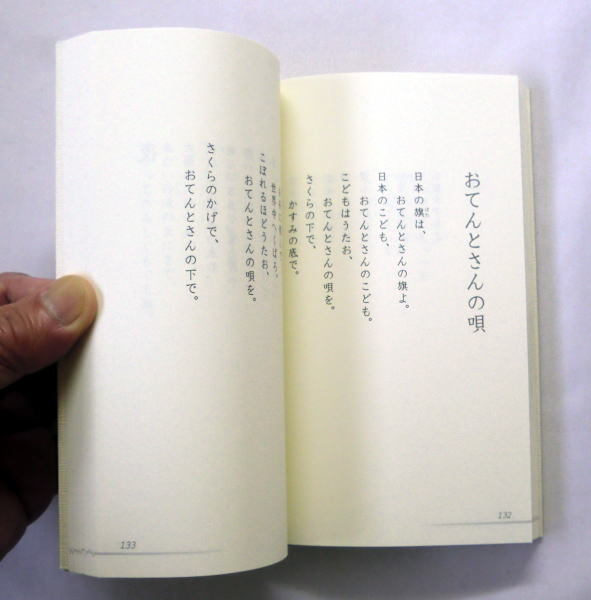 おてんとさんの唄
日本の旗は、
はた
おてんとさんの旗よ。
日本のこども、
おてんとさんのこども。
こどもはうたお、
おてんとさんの唄を。
さくらの下で、
かすみの底で。
世界中へくばろ、
こぼれるほどうたお、
おてんとさんの唄を。
さくらのかげで、
おてんとさんの下で。
132
133